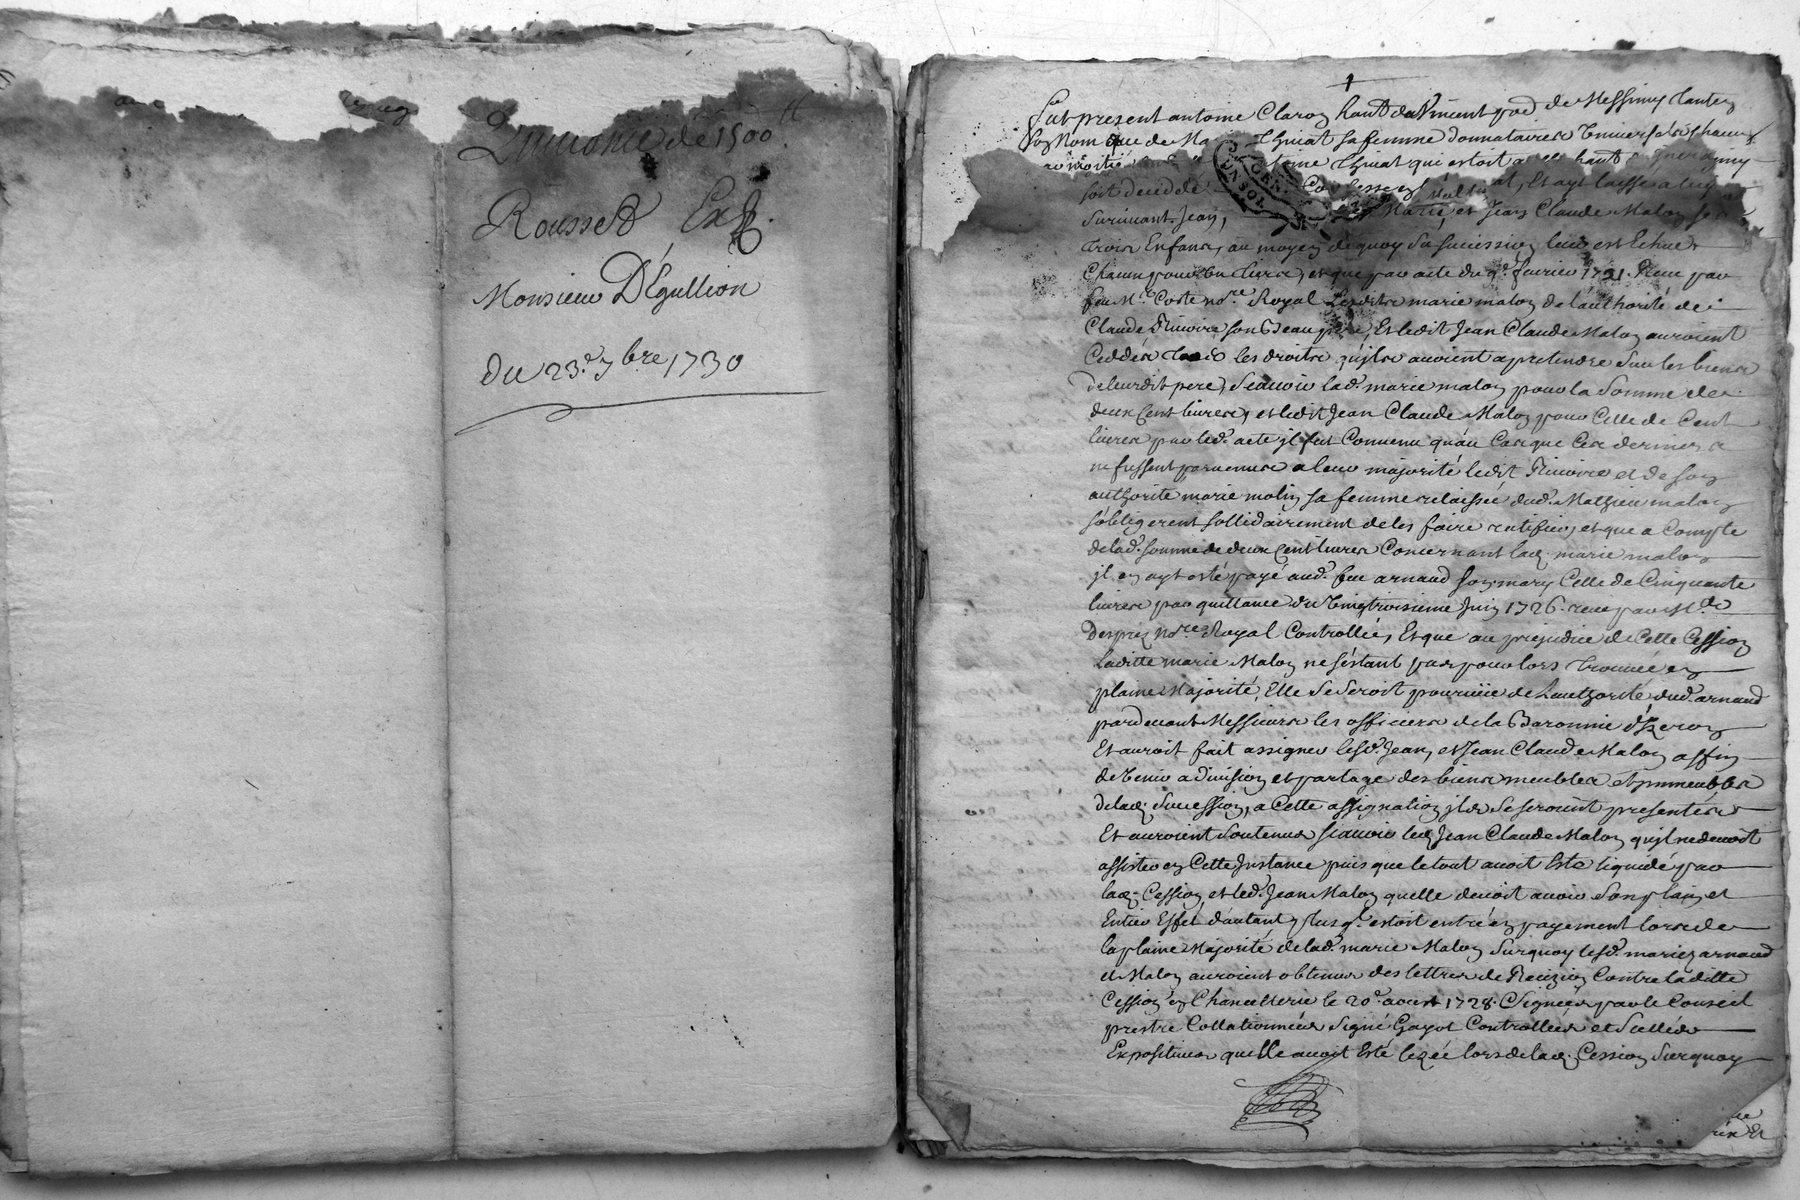 de 1500 ll
Rousset Exp.
Monsieur D'Egullion
du 23.e 7bre 1730
1
fut present antoine Claron hant du Vincent par de Messimy tant en
son Nom que de Ma Thiriat sa femme donnataires
Thiriat qui estoit
soit decedé et ayt laissé a luy
Survivant Jean, Marie, et Jean Claude Malon ses
trois Enfans, au moyen de quoy sa succession leur est Echue
Chacun pour un tiers, et que par acte du 9.e fevrier 1721 Receu par
feu M.e Coste no.re Royal Lesditte marie malon de l'authorité de
Claude Rivoire son Beau pere, Et ledit Jean Claude Malon auroient
Ceddés tous les droits qu'ils avoient a pretendre sur les biens
de leurdit pere, Scavoir lad. marie malon pour la Somme de
deux Cent livres, et ledit Jean Claude Malon pour Celle de Cent
livres par led. acte il fut Convenu qu'au Cas que Ces derniers
ne fussent parvenus a leur majorité ledit Rivoire et de son
authorité marie molin sa femme relaissée dud. Mathieu malon
s'obligerent sollidairement de les faire ratifier, et que a Compte
de lad. somme de deux Cent livres Concernant lad. marie malon
il en ayt esté payé aud. feu arnaud son mary Celle de Cinquante
livres par quittance du Vingtroisieme Juin 1726. receue par M.e
Desprez No.re Royal Controllée, Et que au prejudice de Cette Cession
Laditte marie Malon ne s'estant pas pour lors trouvée en
plaine Majorité, Elle se seroit pourvüe de L'authorité dud. arnaud
pardevant Messieurs les officiers de la Baronnie d'Yzeron
Et auroit fait assigner lesd. Jean, et Jean Claude Malon affin
de Venir a division et partage des biens meubles et immeubles
de lad. Succession, a Cette assignation ils se seroient presentés
Et auroient Soutenus scavoir led. Jean Claude Malon qu'il ne devoit
assister en Cette Instance puis que le tout avoit Esté liquidé par
lad. Cession, et led. Jean Malon qu'elle devoit avoir son plain et
Entier Effet d'autant plus q.l estoit entré en payement lors de
la plaine Majorité de lad. marie Malon Surquoy lesd. mariez arnaud
et Malon auroient obtenus des lettres de Recizion Contre laditte
Cession en Chancellerie le 20.e aoust 1728. Signées par le Conseil
prestre Collationnées Signé Gayot Controllées et Scellées
Expositives qu'elle avoit Esté lezée lors de lad. Cession Surquoy